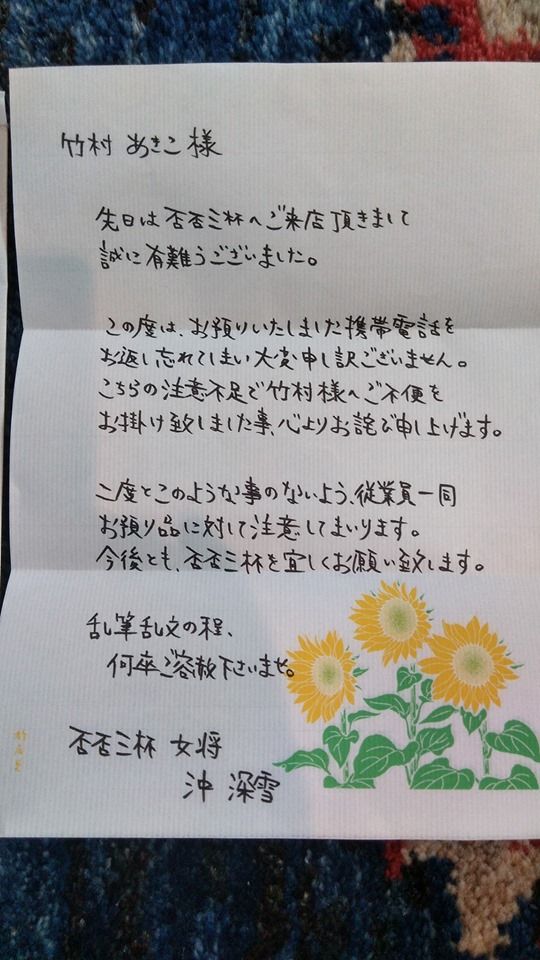 竹村 あきこ 様
先日は 否否三杯へご来店頂きまして
誠に有難うございました。
この度は、お預りいたしました携帯電話を
お返し忘れてしまい大変申し訳ございません。
こちらの注意不足で竹村様へご不便を
お掛け致しました事、心よりお詫び申し上げます。
二度とこのような事のないよう、従業員一同
お預り品に対して注意してまいります。
今後とも、否否三杯を宜しくお願い致します。
乱筆乱文の程、
何卒ご容赦下さいませ。
否否三杯 女将
沖 深雪